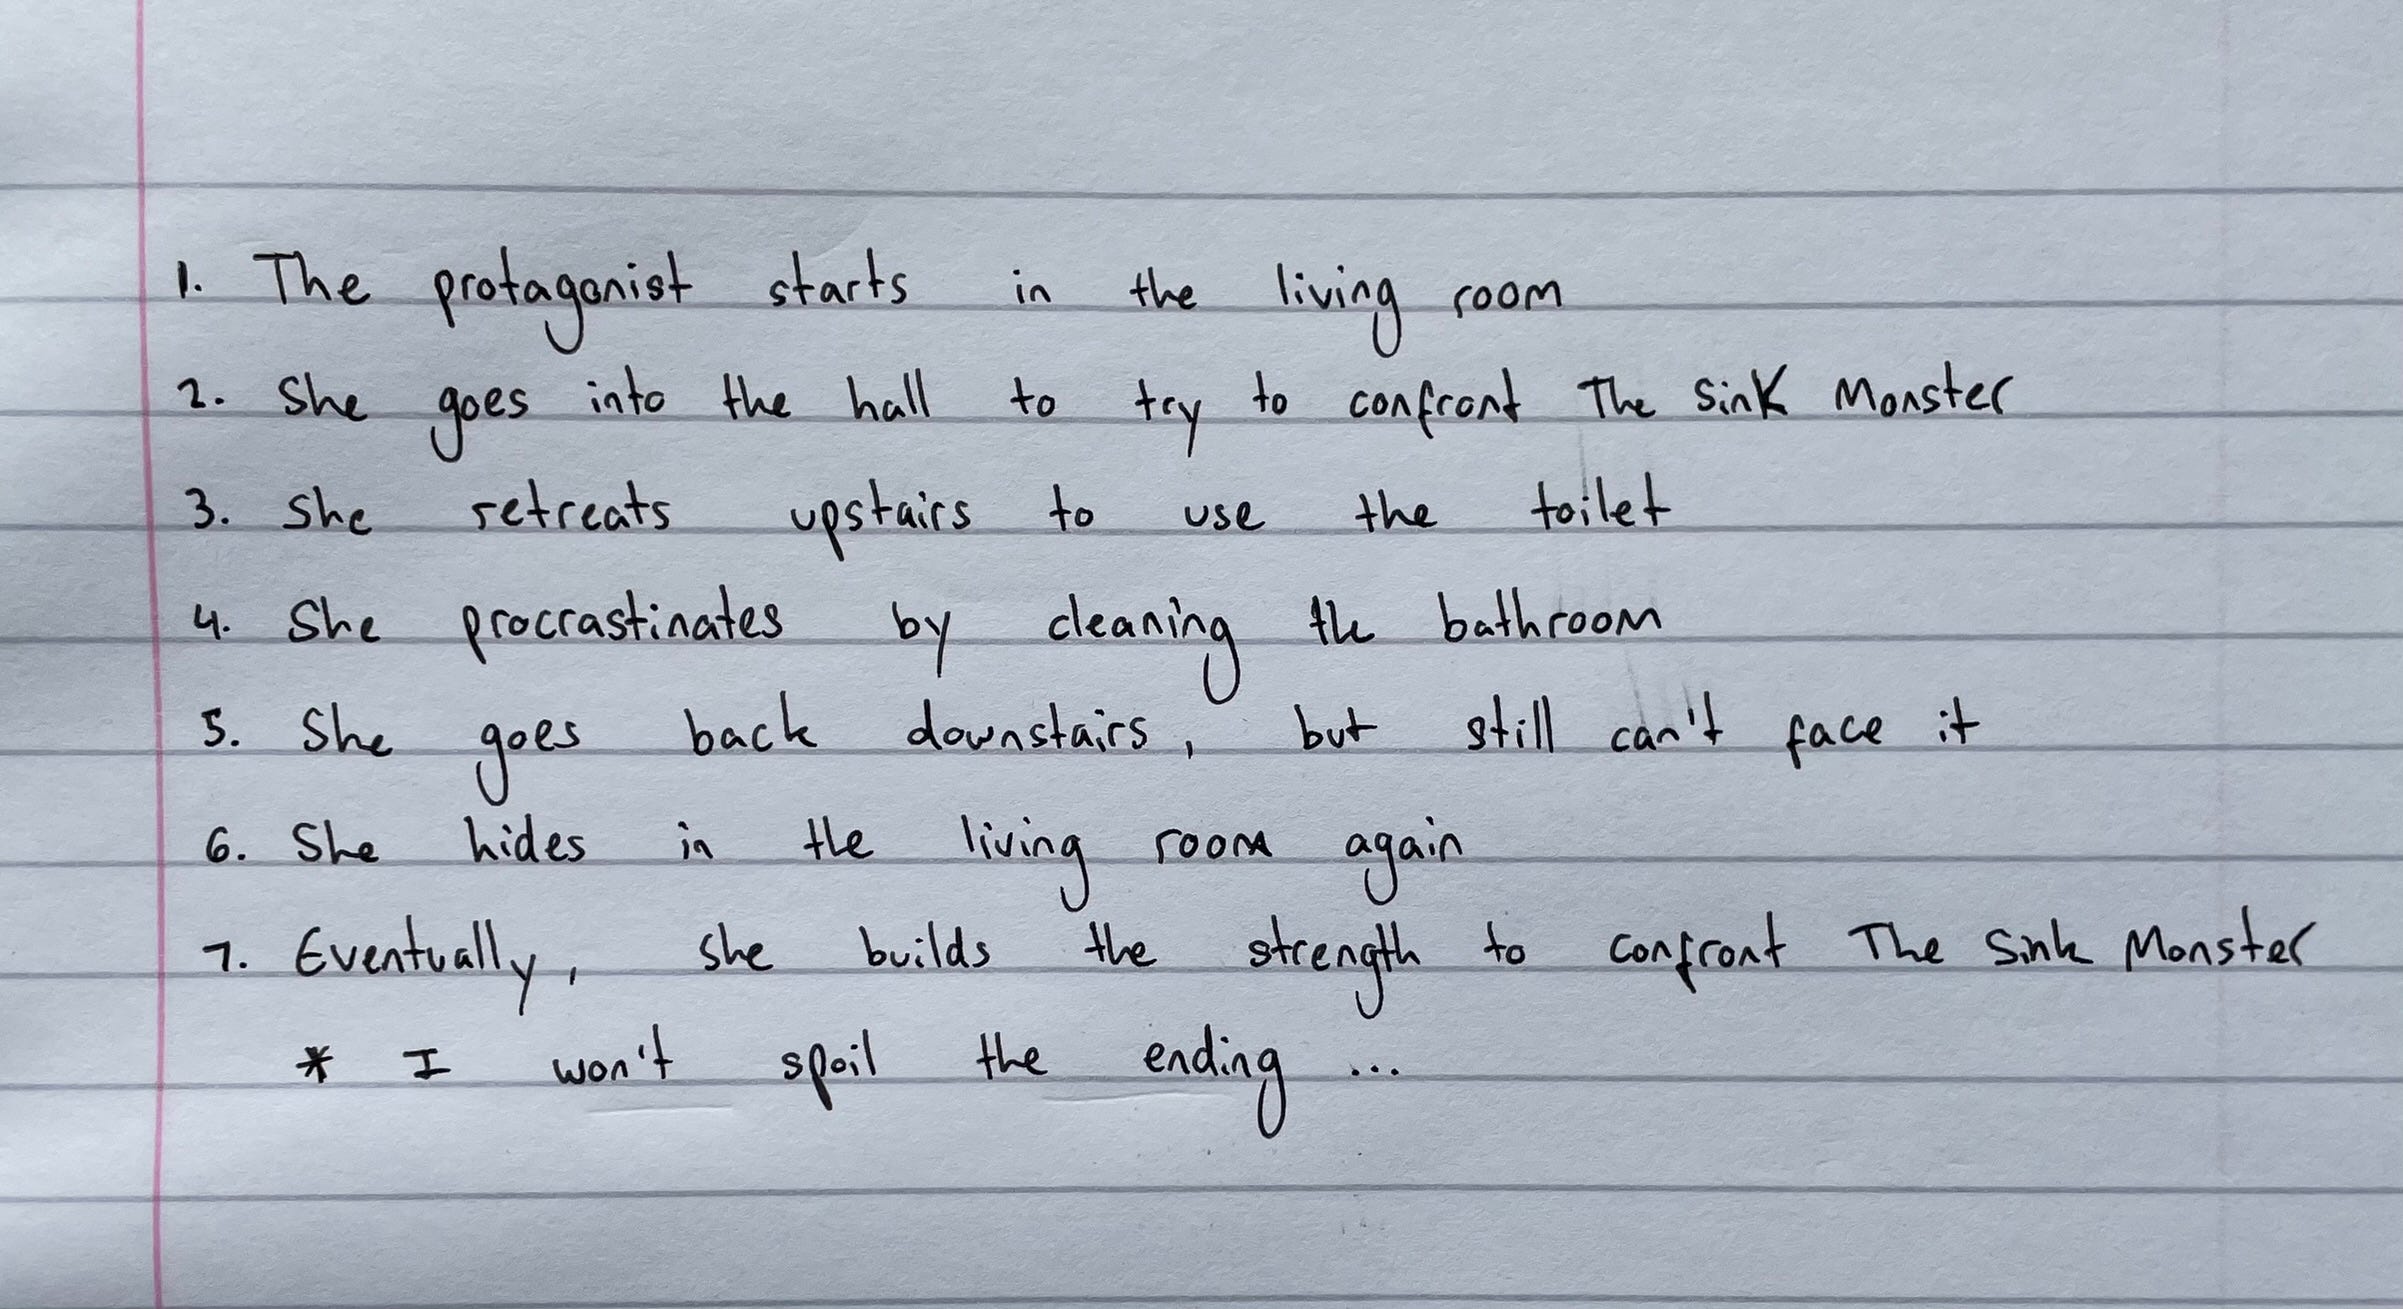 1. The protagonist starts in the living room
2. She goes into the hall to try to confront The Sink Monster
3. She retreats upstairs to use the toilet
4. She procrastinates by cleaning the bathroom
5. She goes back downstairs, but still can't face it
6. She hides in the living room again
7. Eventually, she builds the strength to confront The Sink Monster
* I won't spoil the ending ...